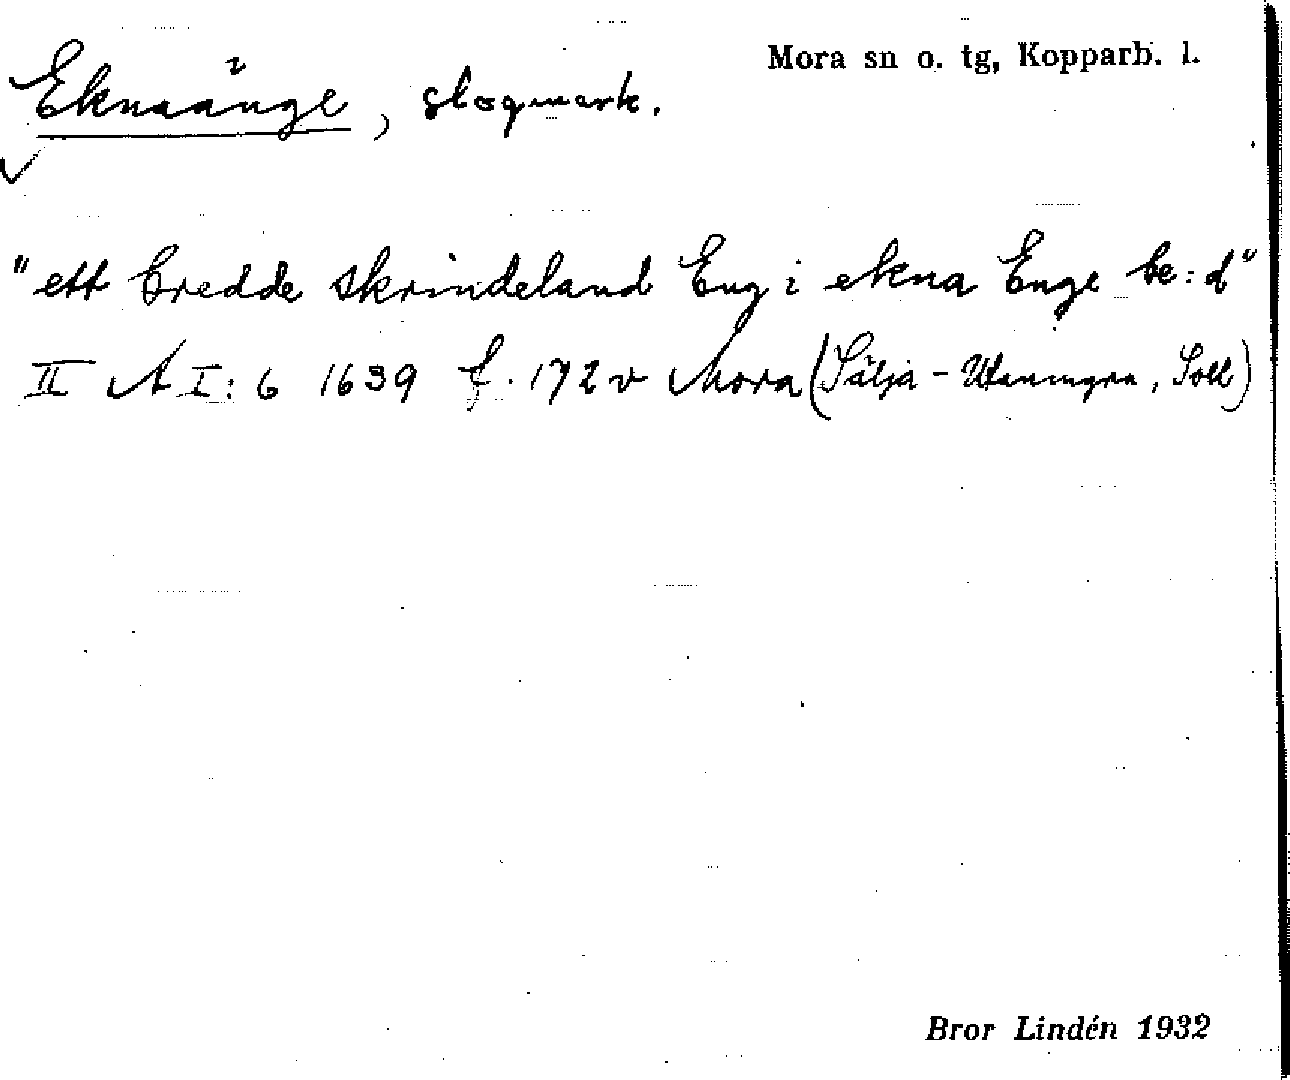 Mora sn o. tg, Kopparb. l.
Eknaänge, slogmark.
"ett bredde skrindeland Eng i ekna Enge be:d"
II A I: 6 1639 f. 172 v Mora (Sälja - Utanmyra, Soll)
Bror Lindén 1932